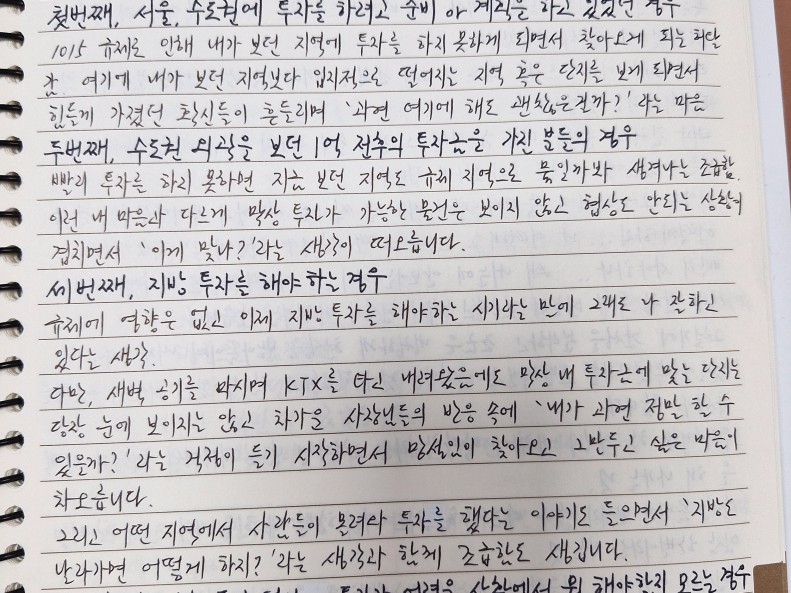 첫번째, 서울, 수도권에 투자를 하려고 준비 아 계획을 하고 있었던 경우
1015 규제로 인해 내가 보던 지역에 투자를 하지 못하게 되면서 찾아오게 되는 허탈
감. 여기에 내가 보던 지역보다 입지적으로 떨어지는 지역 혹은 단지를 보게 되면서
힘들게 가졌던 확신들이 흔들리며 '과연 여기에 해도 괜찮은건가?' 라는 마음
두번째, 수도권 외곽을 보던 1억 전후의 투자금을 가진 분들의 경우
빨리 투자를 하지 못하면 지금 보던 지역도 규제 지역으로 묶일까봐 생겨나는 조급함.
이런 내 마음과 다르게 막상 투자가 가능한 물건은 보이지 않고 협상도 안되는 상황이
겹치면서 '이게 맞나?'라는 생각이 떠오릅니다.
세번째, 지방 투자를 해야하는 경우
규제에 영향은 없고 이제 지방 투자를 해야하는 시기라는 말에 그래도 나 잘하고
있다는 생각.
다만, 새벽 공기를 마시며 KTX를 타고 내려왔음에도 막상 내 투자금에 맞는 단지는
당장 눈에 보이지는 않고 차가운 사장님들의 반응 속에 '내가 과연 정말 할 수
있을까?' 라는 걱정이 들기 시작하면서 망설임이 찾아오고 그만두고 싶은 마음이
차오릅니다.
그리고 어떤 지역에서 사람들이 몰려와 투자를 했다는 이야기도 들으면서 '지방도
날라가면 어떻게 하지?'라는 생각과 함께 조급함도 생깁니다.
투자가 어려운 상황에서 뭘 해야할지 모르는 경우